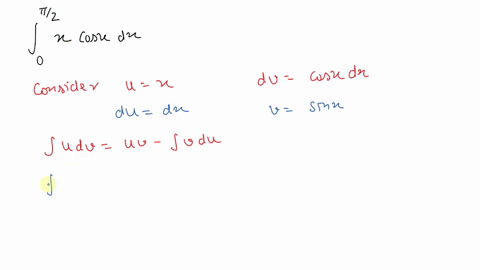 ∫₀^{π/2} x cosx dx
Consider u = x dv = cosx dx
du = dx v = sinx
∫ u dv = uv - ∫ v du
∫